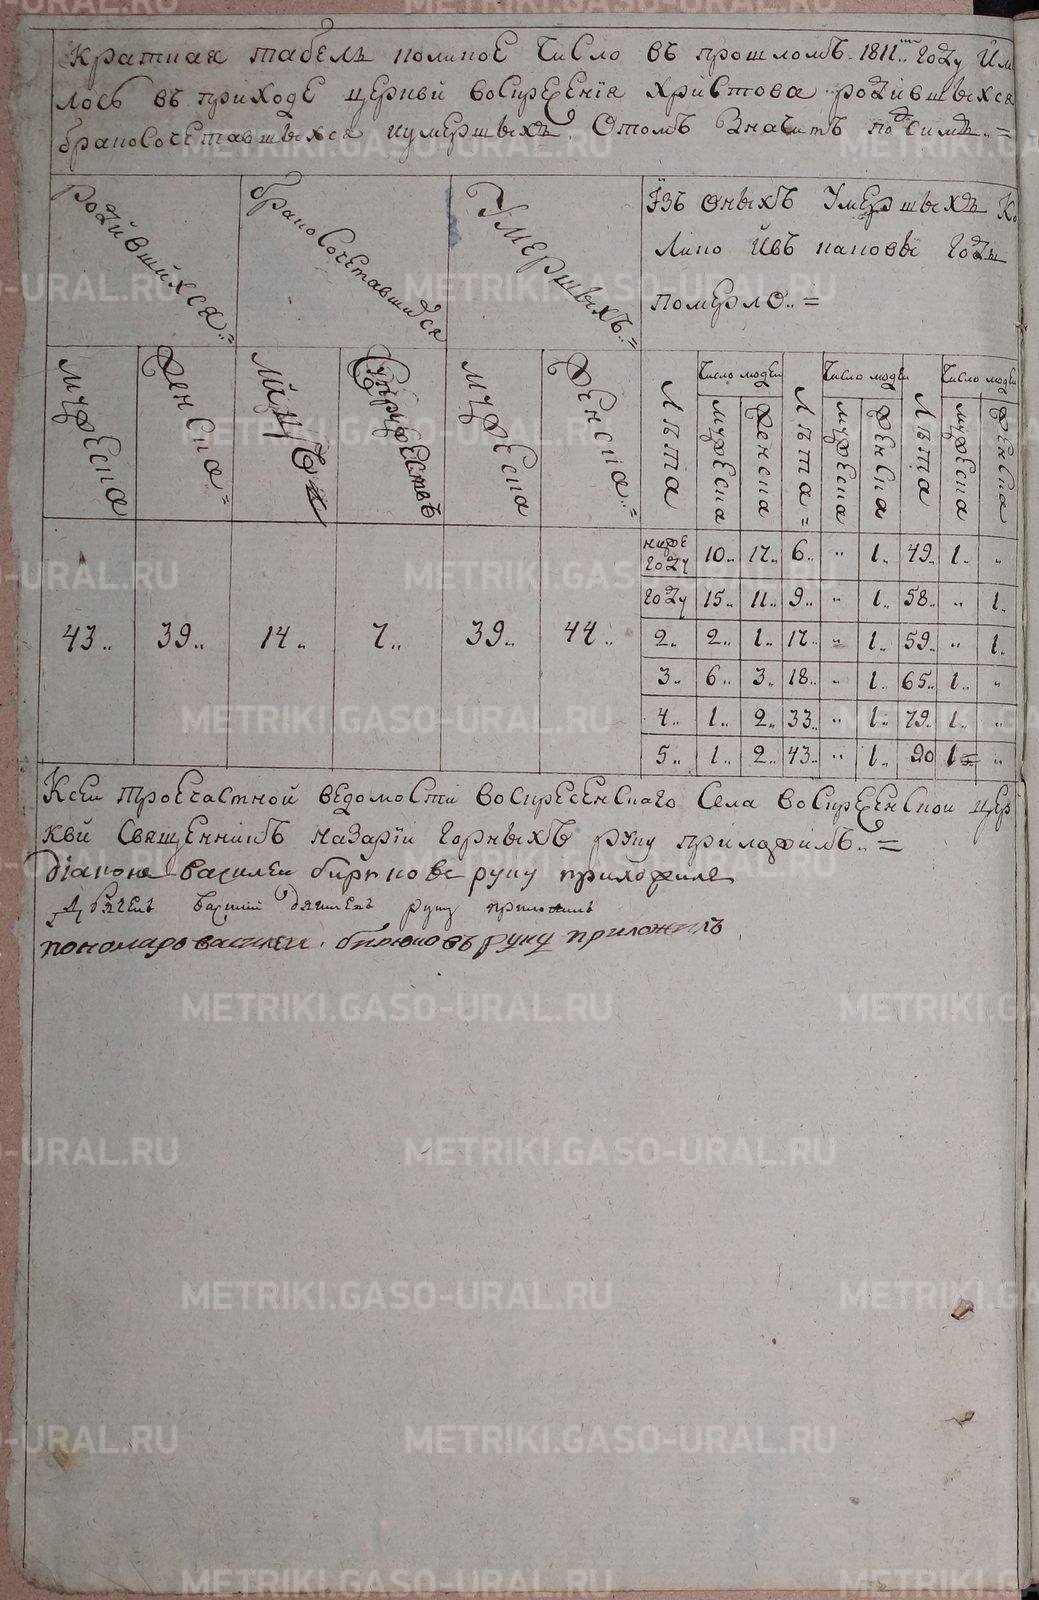 Краткая табель коликое число въ прошломъ 1811.. году им
лось въ приходе церкви воскресения христова родившыхся
бракосочетавшыхся и умершыхъ. о томъ значитъ подсимъ.. =
родившихся.. =
бракосочетавшихся
умершыхъ.. =
изъ оныхъ умершыхъ ко
лико и въ каковы годы
померло.. =
мужеска
женска =
числа
супружествъ
мужеска
женска.. =
лѣта
число людей
мужеска
женска
лѣта =
число людей
мужеска
женска
лѣта
число людей
мужеска
женска
43.. 39.. 14.. 7.. 39.. 44..
ниже году 10.. 17.. 6.. „ 1.. 49.. 1.. „
году 15.. 11.. 9.. „ 1.. 58.. „ 1..
2.. 2.. 1.. 17.. „ 1.. 59.. „ 1..
3.. 6.. 3.. 18.. „ 1.. 65.. 1.. „
4.. 1.. 2.. 33.. „ 1.. 79.. 1.. „
5.. 1.. 2.. 43.. „ 1.. 90 1 „
К сей троечастной ведомости воскресенскаго села воскресенской цер
кви священникъ назарии горныхъ руку приложилъ.. =
диаконъ василеи бирюковъ руку приложилъ
дьячекъ василий руку приложилъ
пономарь василеи бирюковъ руку приложилъ
METRIKI.GASO-URAL.RU